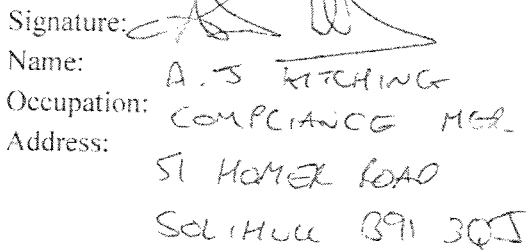 Signature:
Name: A.J KITCHING
Occupation: COMPLIANCE MGR.
Address:
51 HOMER ROAD
SOLIHULL B91 3QJ